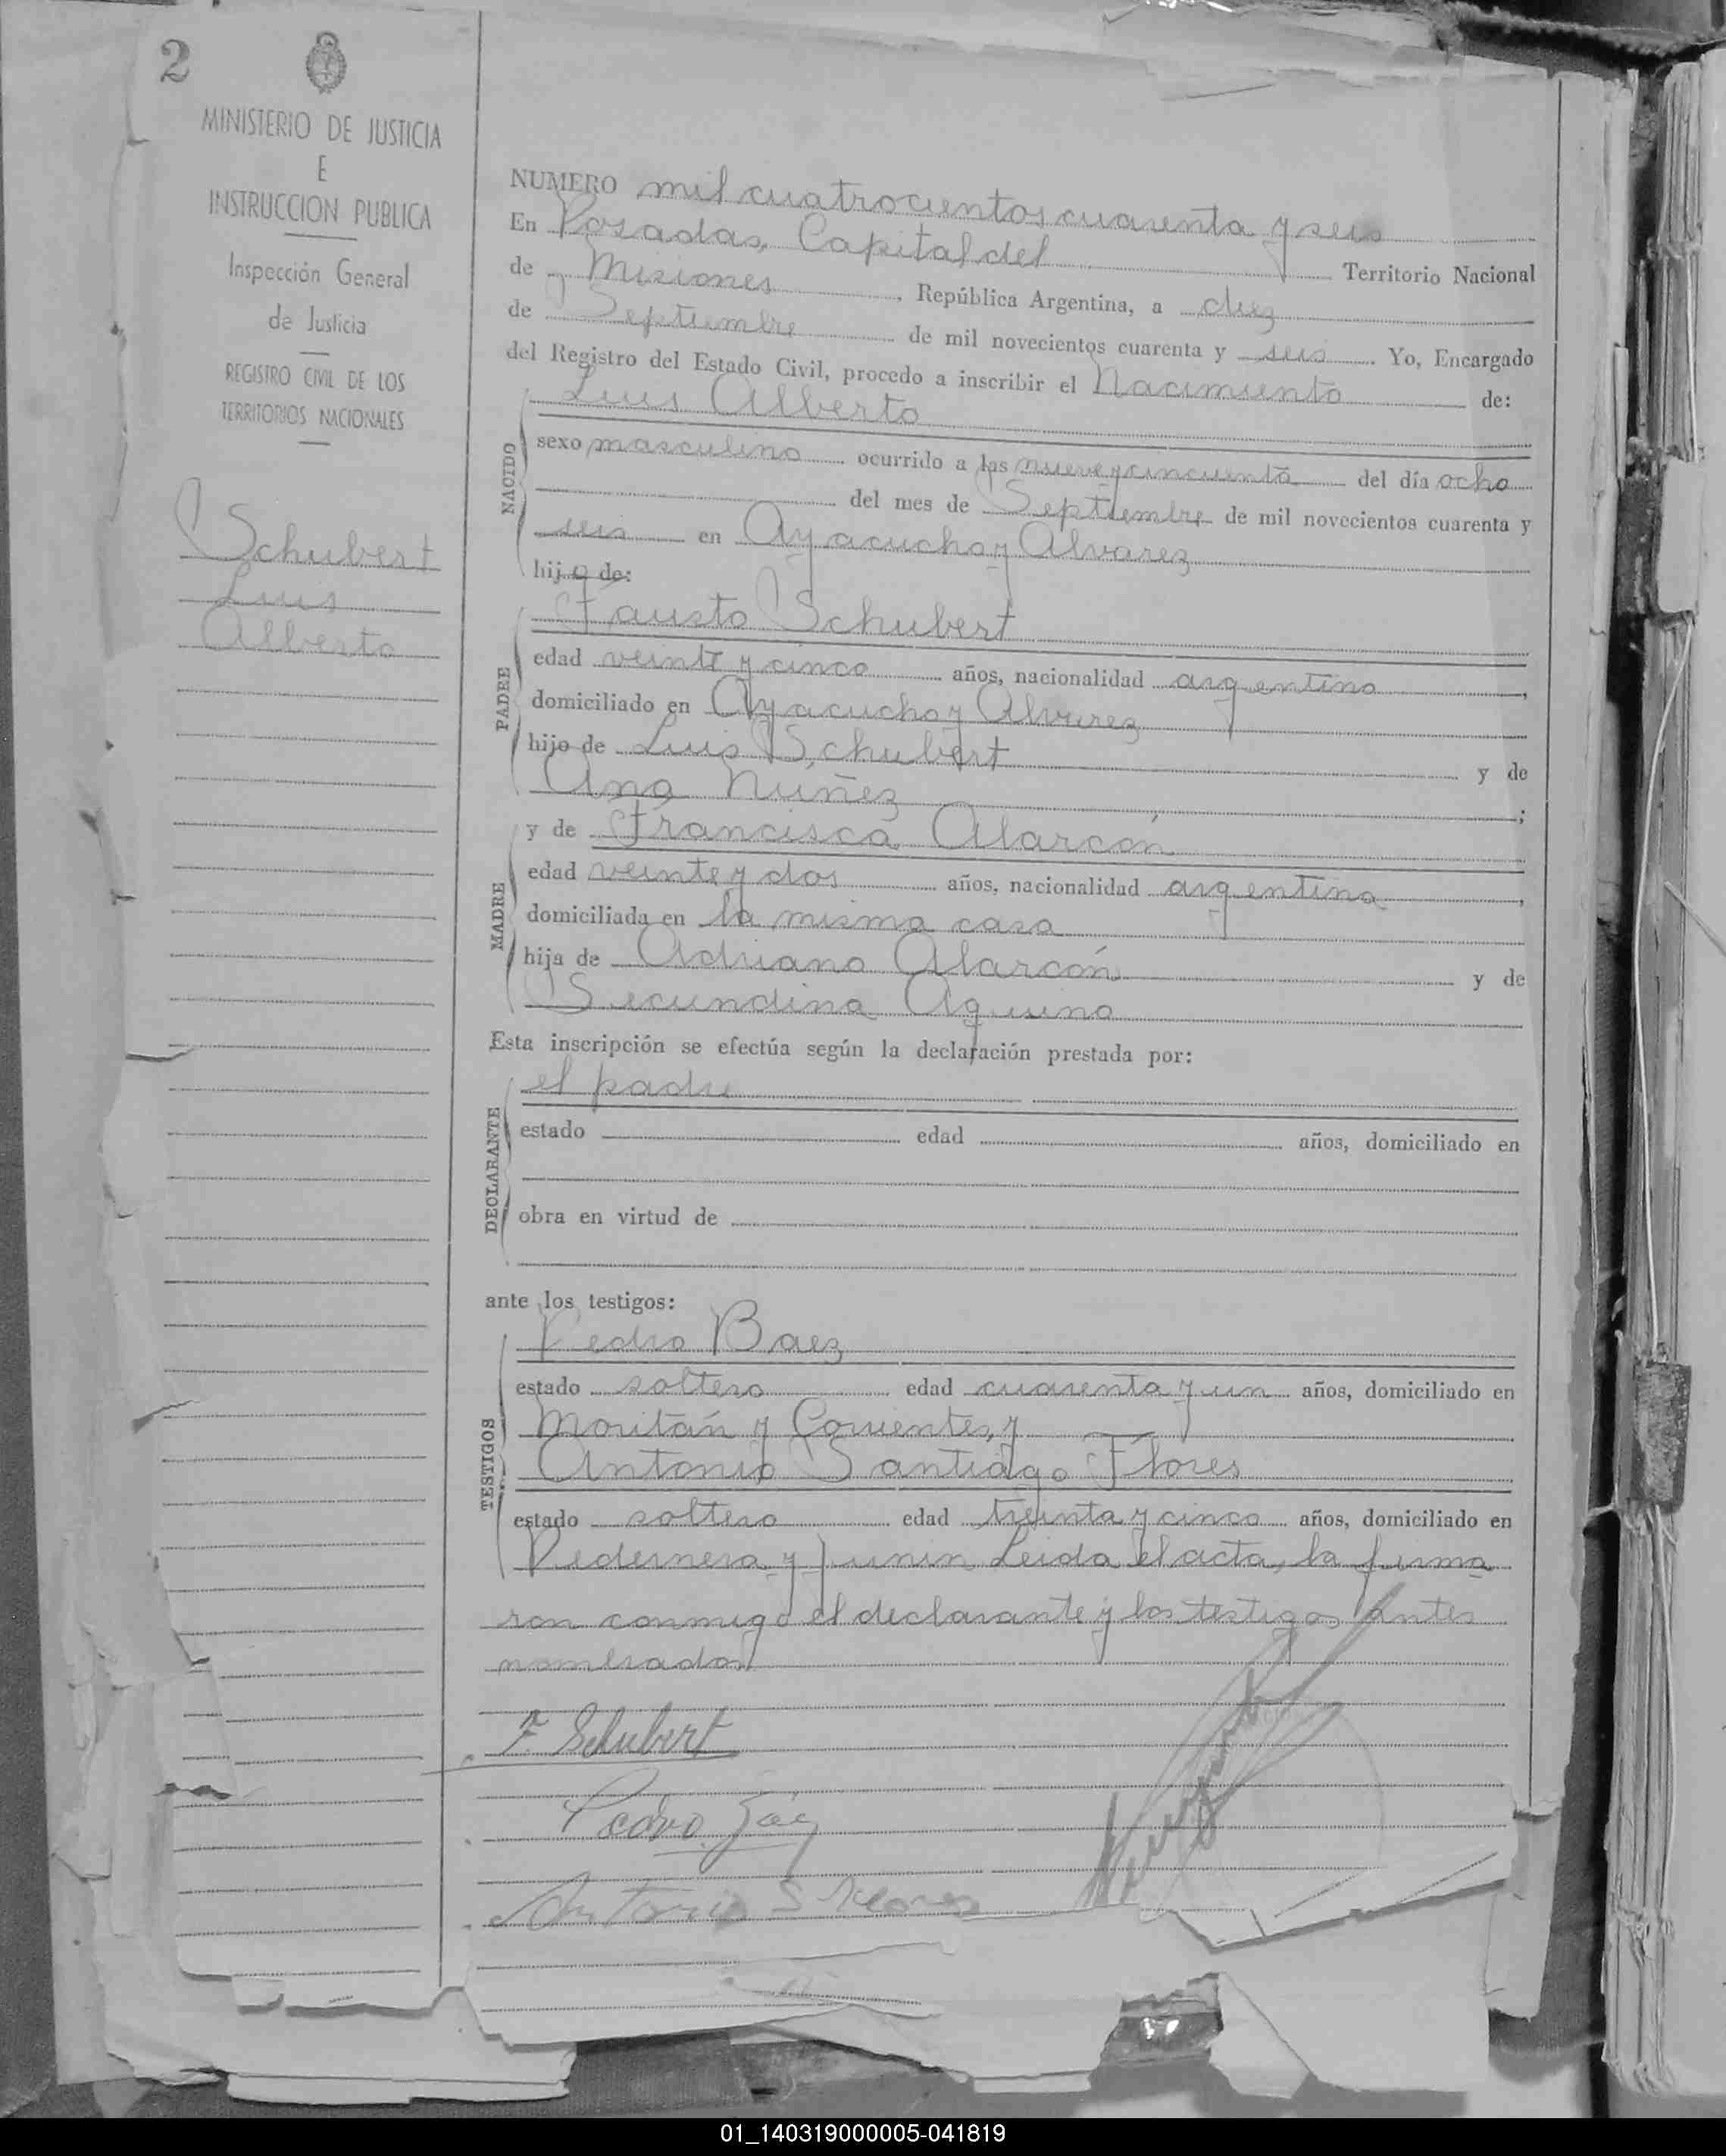 2
MINISTERIO DE JUSTICIA
E
INSTRUCCION PUBLICA
Inspección General
de Justicia
REGISTRO CIVIL DE LOS
TERRITORIOS NACIONALES
Schubert
Luis
Alberto
NUMERO mil cuatrocientos cuarenta y seis
En Posadas, Capital del Territorio Nacional
de Misiones, República Argentina, a diez
de Septiembre de mil novecientos cuarenta y seis. Yo, Encargado
del Registro del Estado Civil, procedo a inscribir el Nacimiento de:
NACIDO
Luis Alberto
sexo masculino ocurrido a las nueve y cincuenta del día ocho
del mes de Septiembre de mil novecientos cuarenta y
seis en Ayacucho y Alvarez
hijo de:
PADRE
Fausto Schubert
edad veinte y cinco años, nacionalidad argentino,
domiciliado en Ayacucho y Alvarez
hijo de Luis Schubert y de
Ana Nuñez;
MADRE
y de Francisca Alarcón
edad veinte y dos años, nacionalidad argentina,
domiciliada en la misma casa
hija de Adriano Alarcón y de
Secundina Aquino
Esta inscripción se efectúa según la declaración prestada por:
DECLARANTE
el padre
estado edad años, domiciliado en
obra en virtud de
ante los testigos:
TESTIGOS
Pedro Baez
estado soltero edad cuarenta y un años, domiciliado en
Moritán y Corrientes, y
Antonio Santiago Flores
estado soltero edad treinta y cinco años, domiciliado en
Pedernera y Junin Leida el acta, la firma
ron conmigo el declarante y los testigos antes
nombrados
F. Schubert
Pedro Baez
Antonio S Flores
01_140319000005-041819